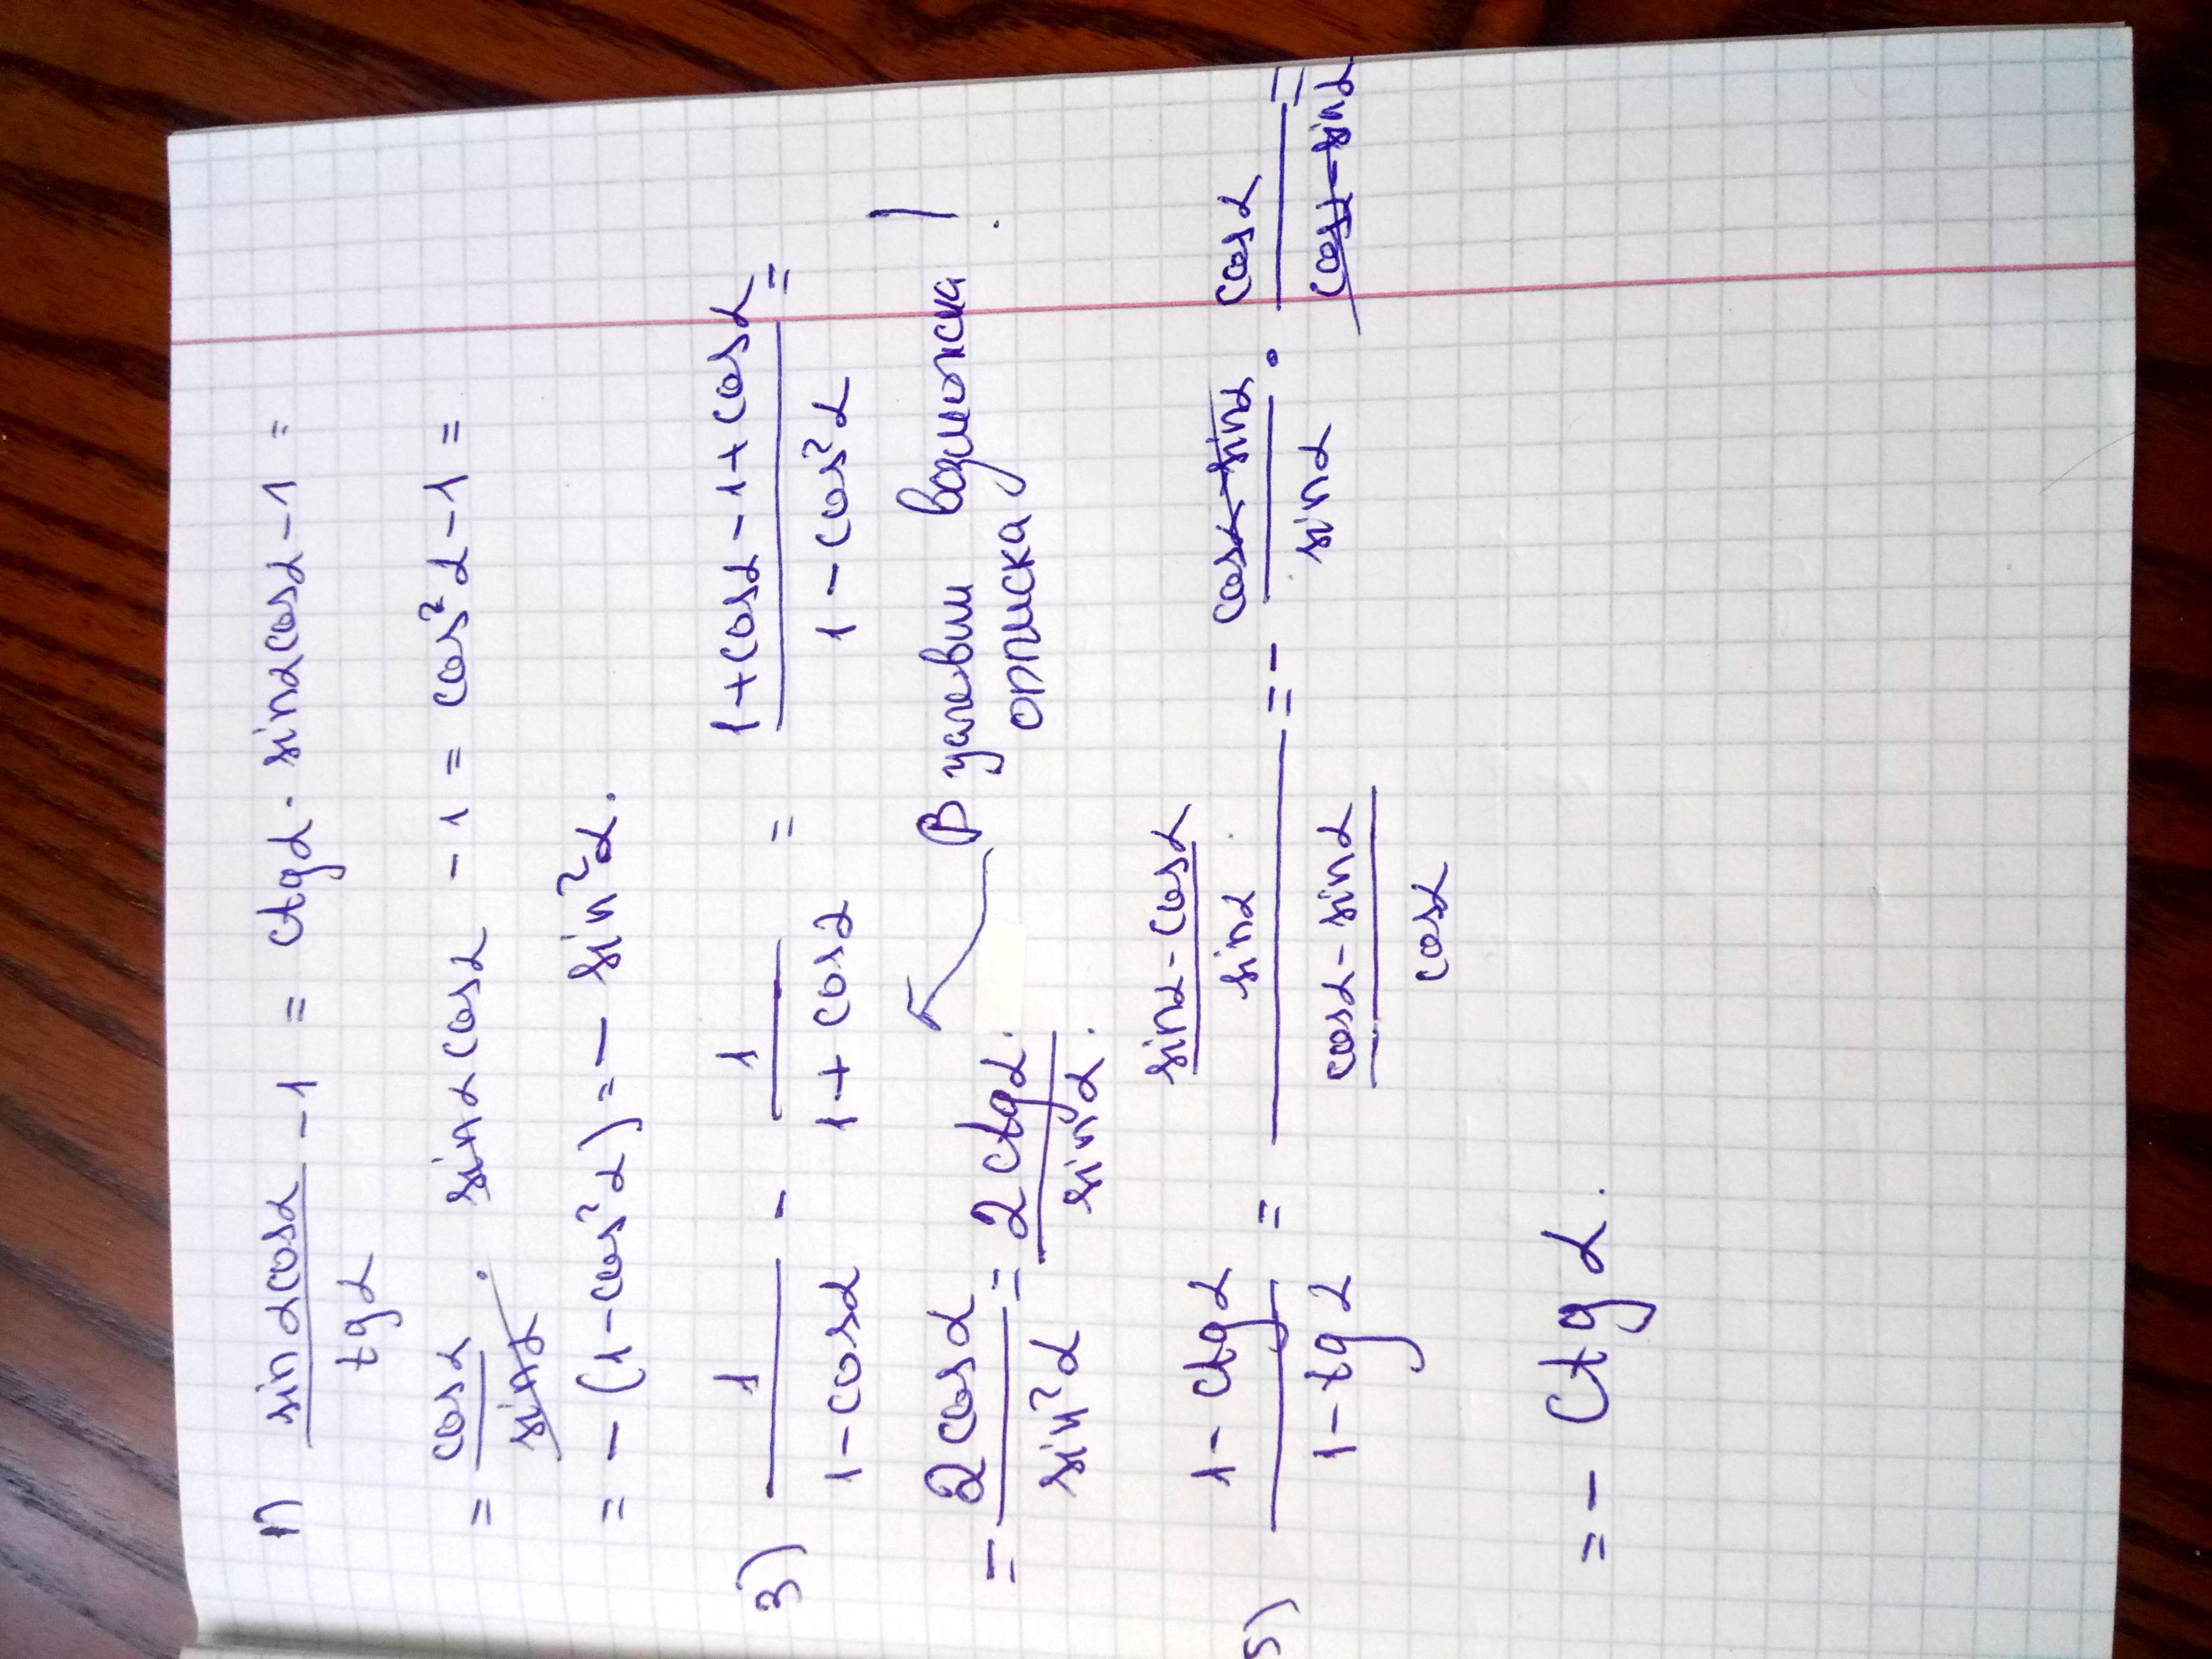 1) sinαcosα/tgα - 1 = ctgα · sinαcosα - 1 =
= cosα/sinα · sinαcosα - 1 = cos²α - 1 =
= - (1 - cos²α) = - sin²α.
3) 1/(1 - cosα) - 1/(1 + cosα) = (1 + cosα - 1 + cosα)/(1 - cos²α) =
= 2cosα/sin²α = 2ctgα/sinα.
В условии возможна
описка
5) (1 - ctgα)/(1 - tgα) = ((sinα - cosα)/sinα)/((cosα - sinα)/cosα) = - (cosα - sinα)/sinα · cosα/(cosα - sinα) =
= - ctgα.